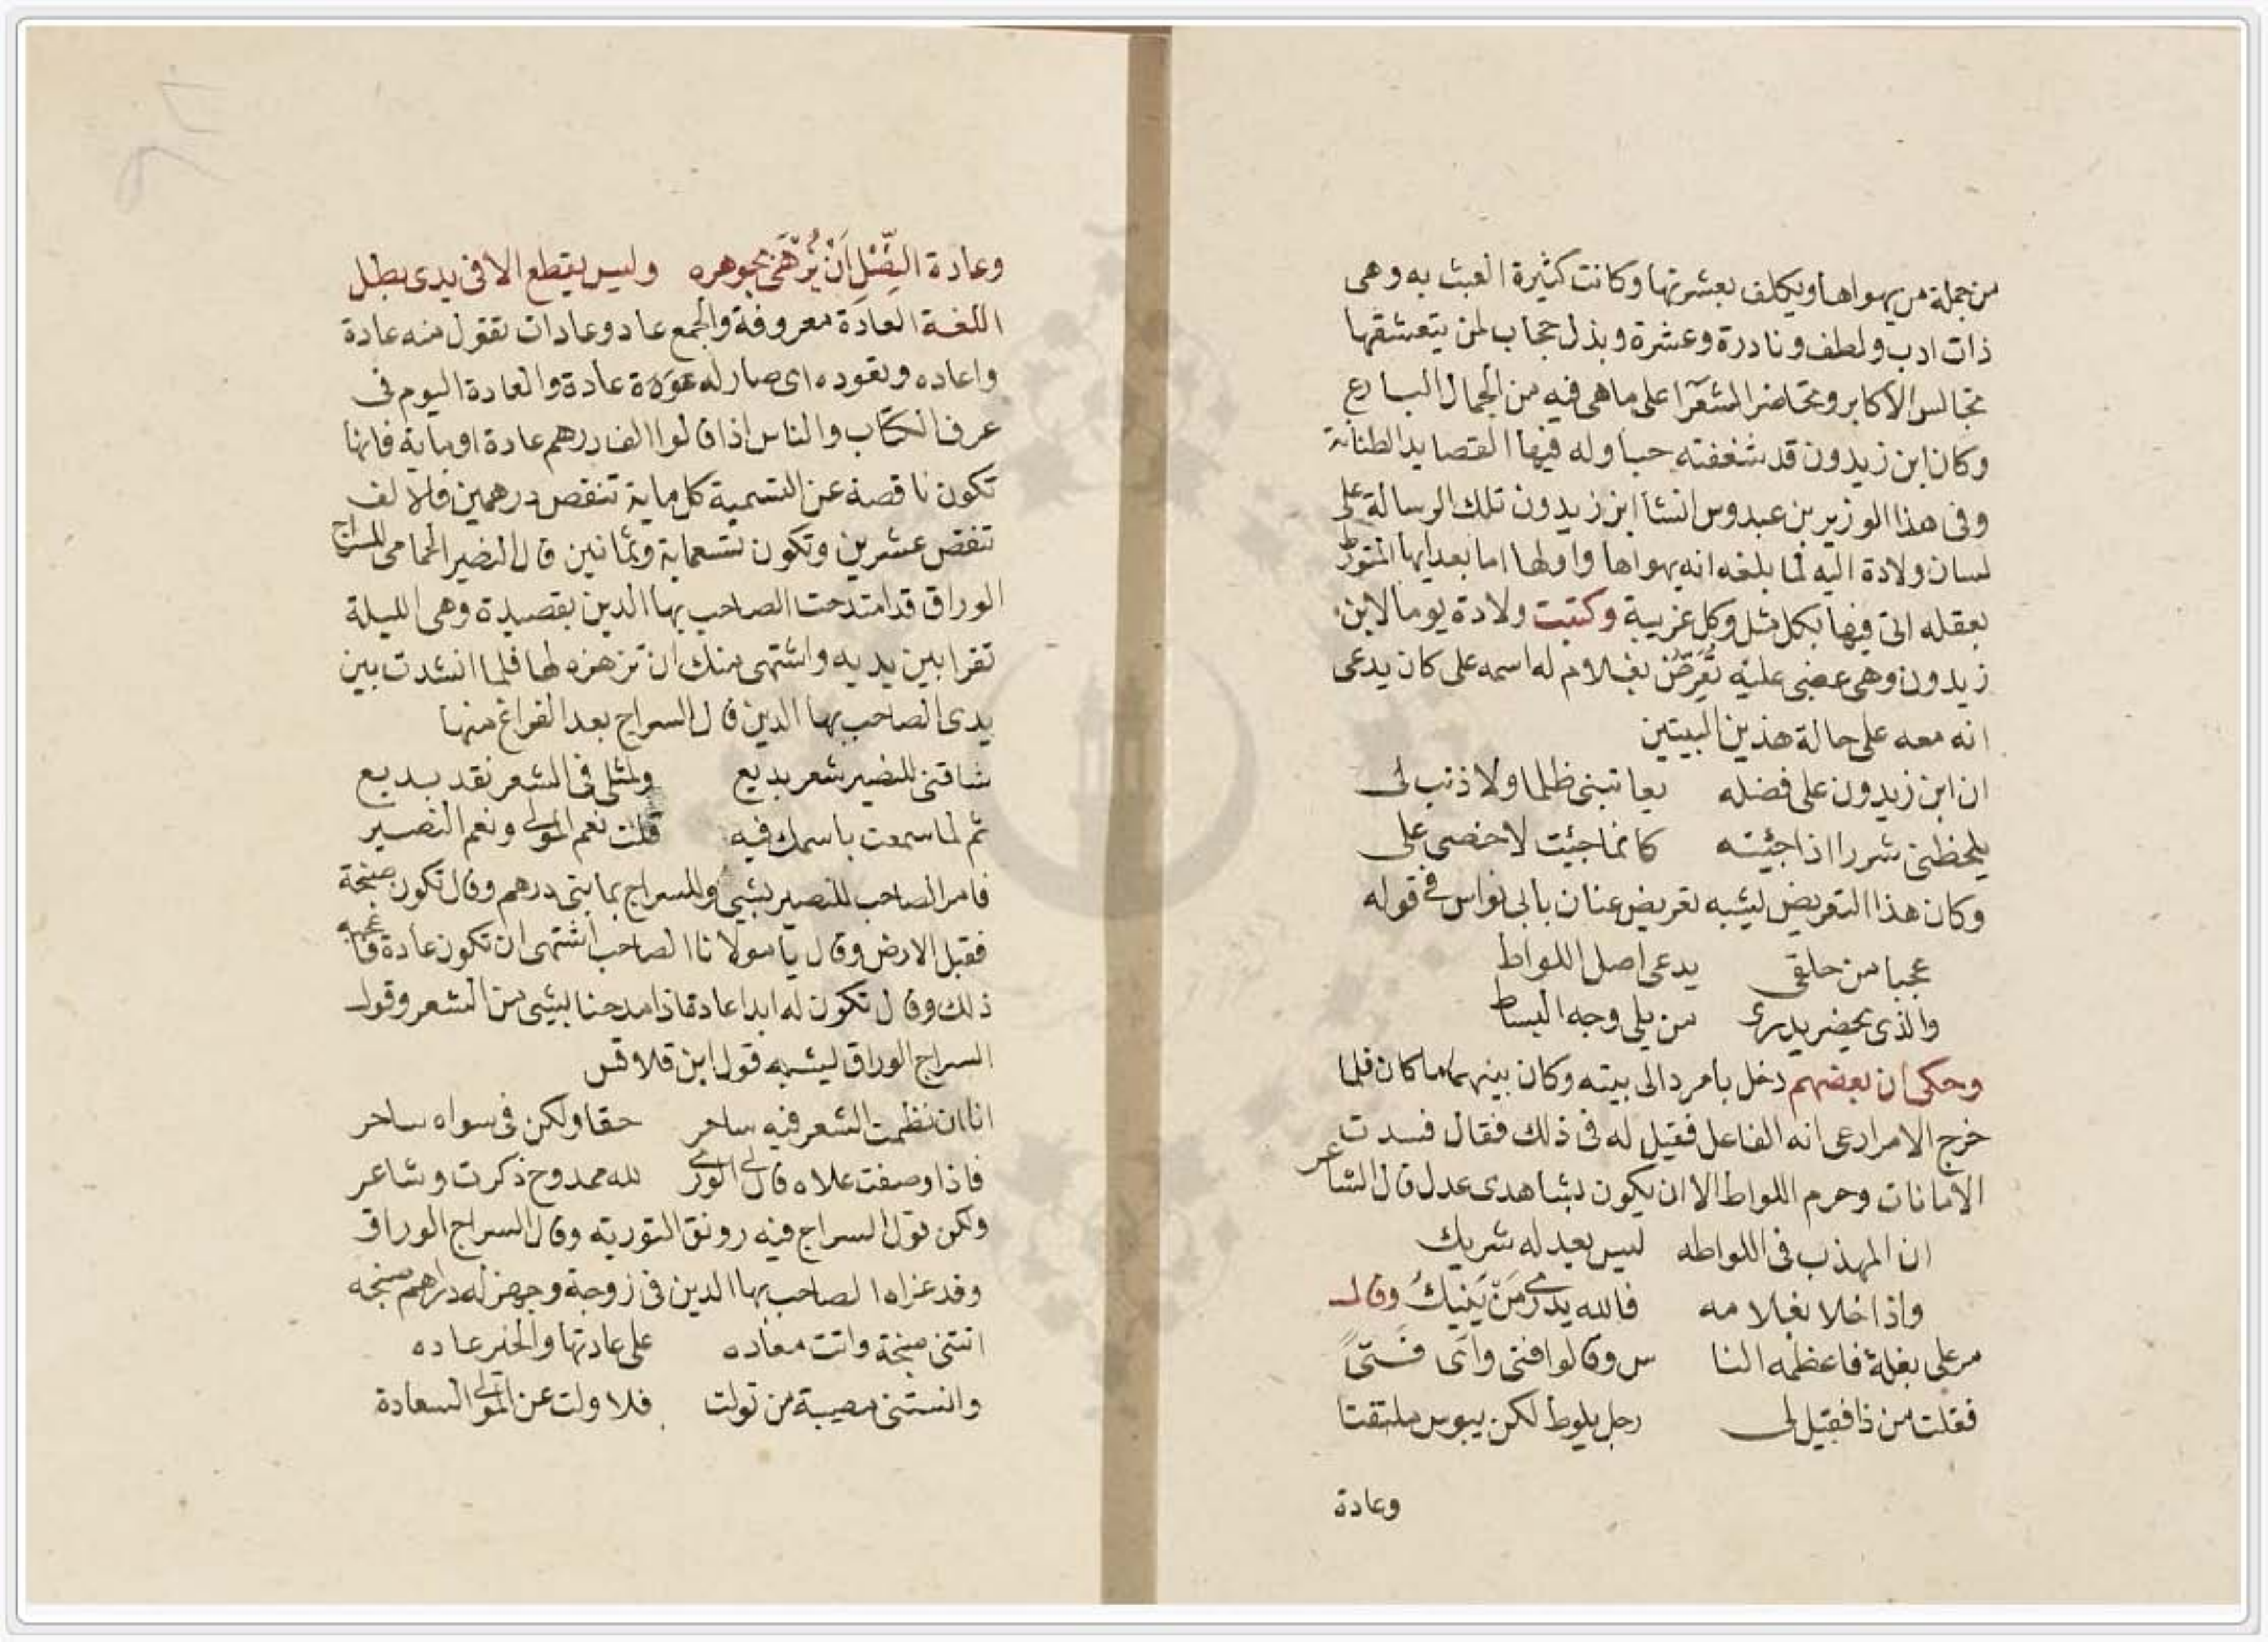 من جملة من يهواها ويكلف بعشرتها وكانت كثيرة العبث به وهى
ذات ادب ولطف ونادرة وعشرة وبذل حجاب لمن يتعشقها
مجالس الاكابر ومحاضر الشعرآ على ما هى فيه من الجمال البارع
وكان ابن زيدون قد شغفته حبا وله فيها القصايد الطنانة
وفى هذا الوزير بن عبدوس انشا ابن زيدون تلك الرسالة على
لسان ولادة اليه لما بلغه انه يهواها واولها اما بعد ايها المتورط
بعقله اتى فيها بكل مثل وكل غريبة وكتبت ولادة يوما لابن
زيدون وهى غضبى عليه تُعَرِّضُ بغلام له اسمه على كان يدعى
انه معه على حالة هذين البيتين
ان ابن زيدون على فضله يعاتبنى ظلما ولا ذنب لى
يلحظنى شررا اذا جئيته كانما جئيت لاخصى على
وكان هذا التعريض يشبه تعريض عنان بابى نواس فى قوله
عجبا من حلقى يدعى اصل اللواط
والذى يحضر يدرى من يلى وجه البساط
وحكى ان بعضهم دخل بامرد الى بيته وكان بينهما ما كان فلما
خرج الامرد ادعى انه الفاعل فقيل له فى ذلك فقال فسدت
الامانات وحرم اللواط الا ان يكون بشاهدى عدل قال الشاعر
ان المهذب فى اللواطه ليس يعدله شريك
واذا خلا بغلامه فالله يدرى مَنْ يَنِيكُ وقال
مر على بغلة فاعظمه النا س وقالوا افتى واَى فَتىً
فقلت من ذا فقيل لى رجل يلوط لكن يبوس ملتقتا
وعادة
وعادة النصْلِ اَنْ يُزْهَى بجوهره وليس يقطع الا فى يدى بطل
اللغة العادة معروفة والجمع عاد وعادات تقول منه عادة
واعاده وتعوده اى صار له عادة والعادة اليوم فى
عرف الكتاب والناس اذا قالوا الف درهم عادة او ماية فانها
تكون ناقصة عن التسمية كل ماية تنقص درهمين فالالف
تنقص عشرين وتكون تسعماية وثمانين قال النضير الحمامى للسراج
الوراق قد امتدحت الصاحب بها الدين بقصيدة وهى الليلة
تقرا بين يديه واشتهى منك ان تزهزه لها فلما انشدت بين
يدى الصاحب بها الدين قال السراج بعد الفراغ منها
شاقنى للنضير شعر بديع ولمثلى فى الشعر نقد بديع
ثم لما سمعت باسمك فيه قلت نعم المولى ونعم النصير
فامر الصاحب للنصير بشيى وللسراج بمايتى درهم وقال تكون صنجة
فقبل الارض وقال يا مولانا الصاحب اشتهى ان تكون عادة فاعجبه
ذلك وقال تكون له ابدا عادة اذا مدحنا بشيى من الشعر وقول
السراج الوراق يشبه قول ابن قلاقس
انا ان نظمت الشعر فيه ساحر حقا ولكن فى سواه ساخر
فاذا وصفت علاه قال لى الورى لله ممدوح ذكرت وشاعر
ولكن قول السراج فيه رونق التورية وقال السراج الوراق
وقد عزاه الصاحب بها الدين فى زوجة وجهز له دراهم صنجه
اتتنى صنجة واتت معاده على عادتها والخير عاده
وانستنى مصيبة من تولت فلا ولت عن المولى السعادة